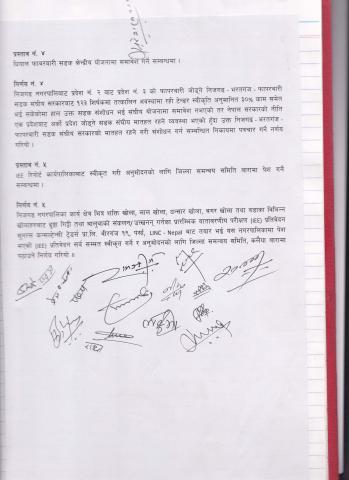 प्रस्ताव नं. ४
धियाल फापरवारी सडक केन्द्रीय योजनामा समावेश गर्ने सम्बन्धमा ।
निर्णय नं. ४
निजगढ नगरपालिबाट प्रदेश नं. २ बाट प्रदेश नं. ३ को फापरबारी जोड्ने निजगढ - भरतगंज - फापरबारी
सडक संघीय सरकारबाट ९२३ शिर्षकमा तत्कालिन अवस्थामा रही टेन्डर स्वीकृति अनुमानित ३०% काम समेत
भई सकेकोमा हाल उक्त सडक संशोधन भई संघीय योजनामा समावेश नभएको तर नेपाल सरकारको नीति
एक प्रदेशबाट अर्को प्रदेश जोड्ने सडक संघीय मातहत रहने व्यवस्था भएको हुँदा उक्त निजगढ - भरतगंज -
फापरबारी सडक संघीय सरकारको मातहत रहने गरी संशोधन गर्न सम्बन्धित निकायमा पत्राचार गर्ने निर्णय
गरियो ।
प्रस्ताव नं. ५
IEE रिपोर्ट कार्यपालिकाबाट स्वीकृत गरी अनुमोदनको लागि जिल्ला समन्वय समिति बारामा पेश गर्ने
सम्बन्धमा ।
निर्णय नं. ५
निजगढ नगरपालिका कार्य क्षेत्र भित्र शक्ति खोला, लाल खोला, धन्सार खोला, बगर खोला तथा वडाका बिभिन्न
खोलाहरुबाट ढुङ्गा गिट्टी तथा बालुवाको संकलन/उत्खनन् गर्नका प्रारम्भिक वातावरणीय परीक्षण (IEE) प्रतिवेदन
कन्सल्टेन्सी ट्रेडर्स प्रा.लि. बीरगंज १९, पर्सा, LINC - Nepal बाट तयार भई यस नगरपालिकामा पेश
भएको (IEE) प्रतिवेदन सर्व सम्मत स्वीकृत गर्ने र अनुमोदनको लागि जिल्ला समन्वय समिति, कलैया बारामा
पठाउने निर्णय गरियो ॥